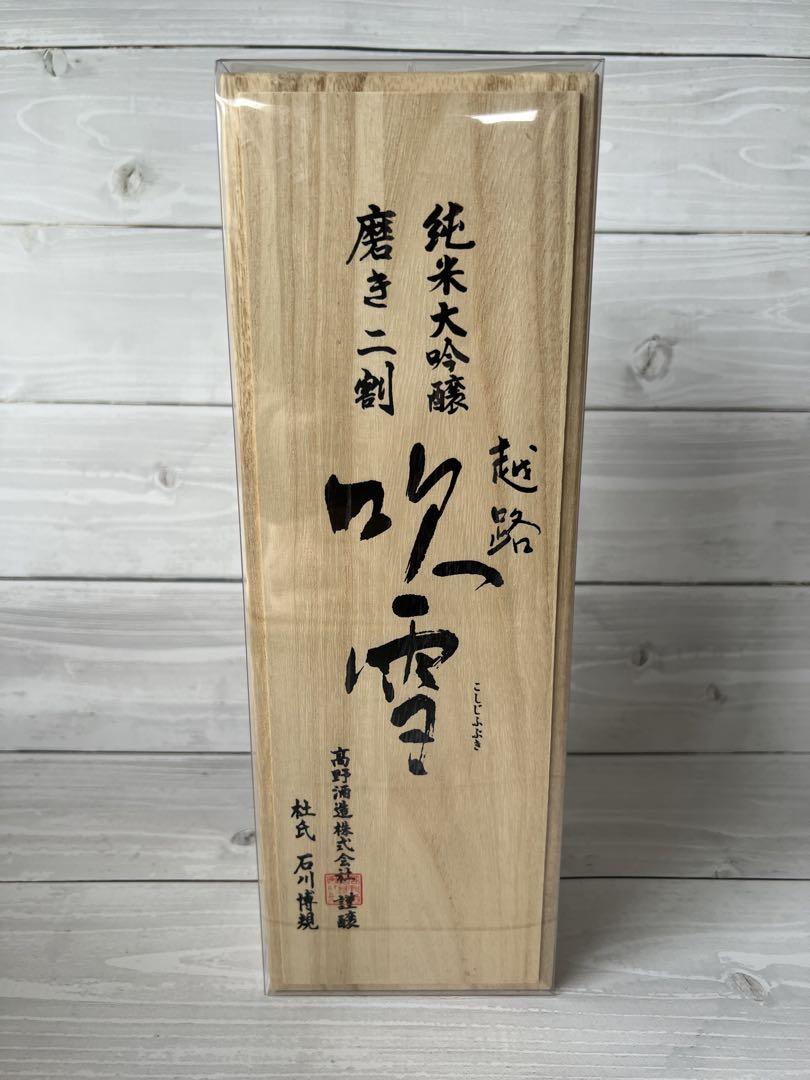 純米大吟醸
磨き二割
越路
吹雪
こしじふぶき
髙野酒造株式会社 謹醸
杜氏 石川博規